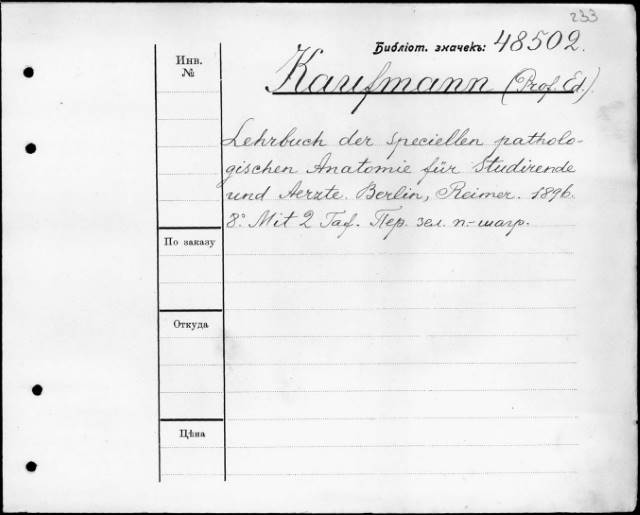 233
Библіот. значекъ: 48502.
Инв.
№
Kaufmann (Prof. Ed.).
Lehrbuch der speciellen patholo-
gischen Anatomie für Studirende
und Aerzte. Berlin, Reimer. 1896.
8º Mit 2 Taf. Пер. зел. п-шагр.
По заказу
Откуда
Цѣна